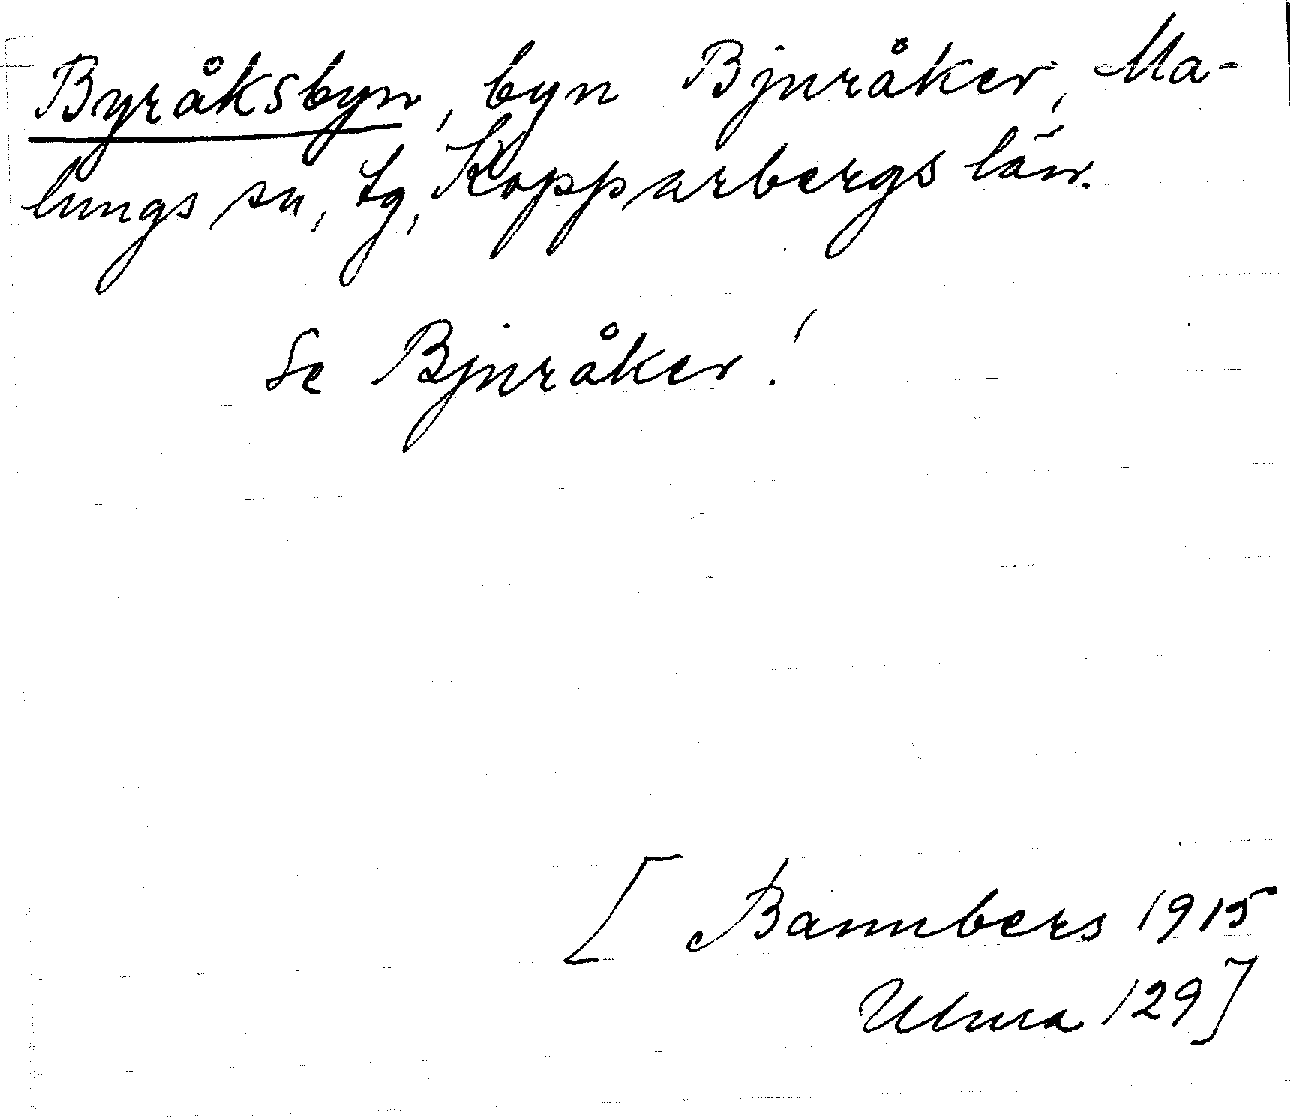 Byråksbyn, byn Bjuråker, Ma-
lungs sn, tg, Kopparbergs län.
Se Bjuråker!
[Bannbers 1915
Ulma 129]